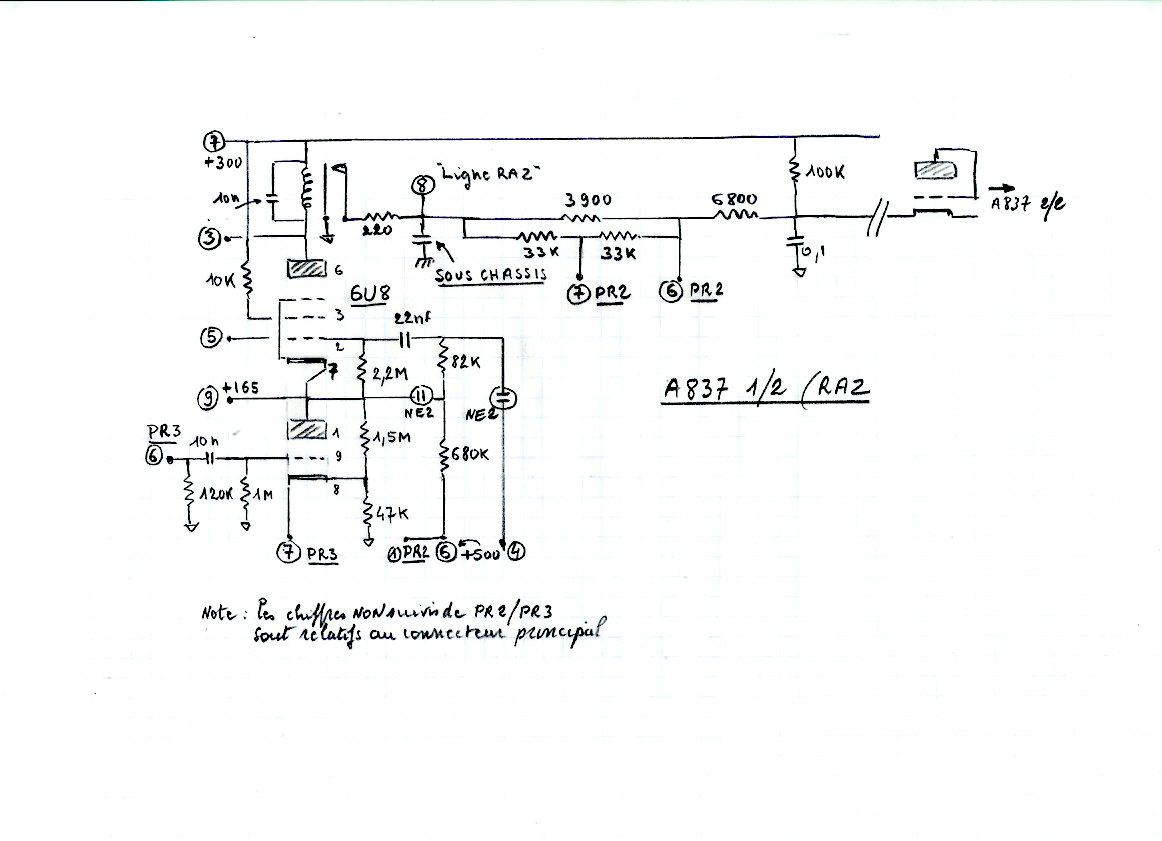 7
+300
10n
"Ligne RAZ"
8
3900
6800
100K
A837 2/2
3
220
33K
33K
0,1
10K
6
SOUS CHASSIS
7 PR2
6 PR2
6U8
3
22nf
5
2
82K
7
2,2M
A837 1/2 (RAZ
9
+165
NE2
NE2
PR3
10n
1
1,5M
6
9
680K
120K
1M
8
47K
7 PR3
1 PR2
6
+500
4
Note : Les chiffres NON suivis de PR2/PR3
sont relatifs au connecteur principal